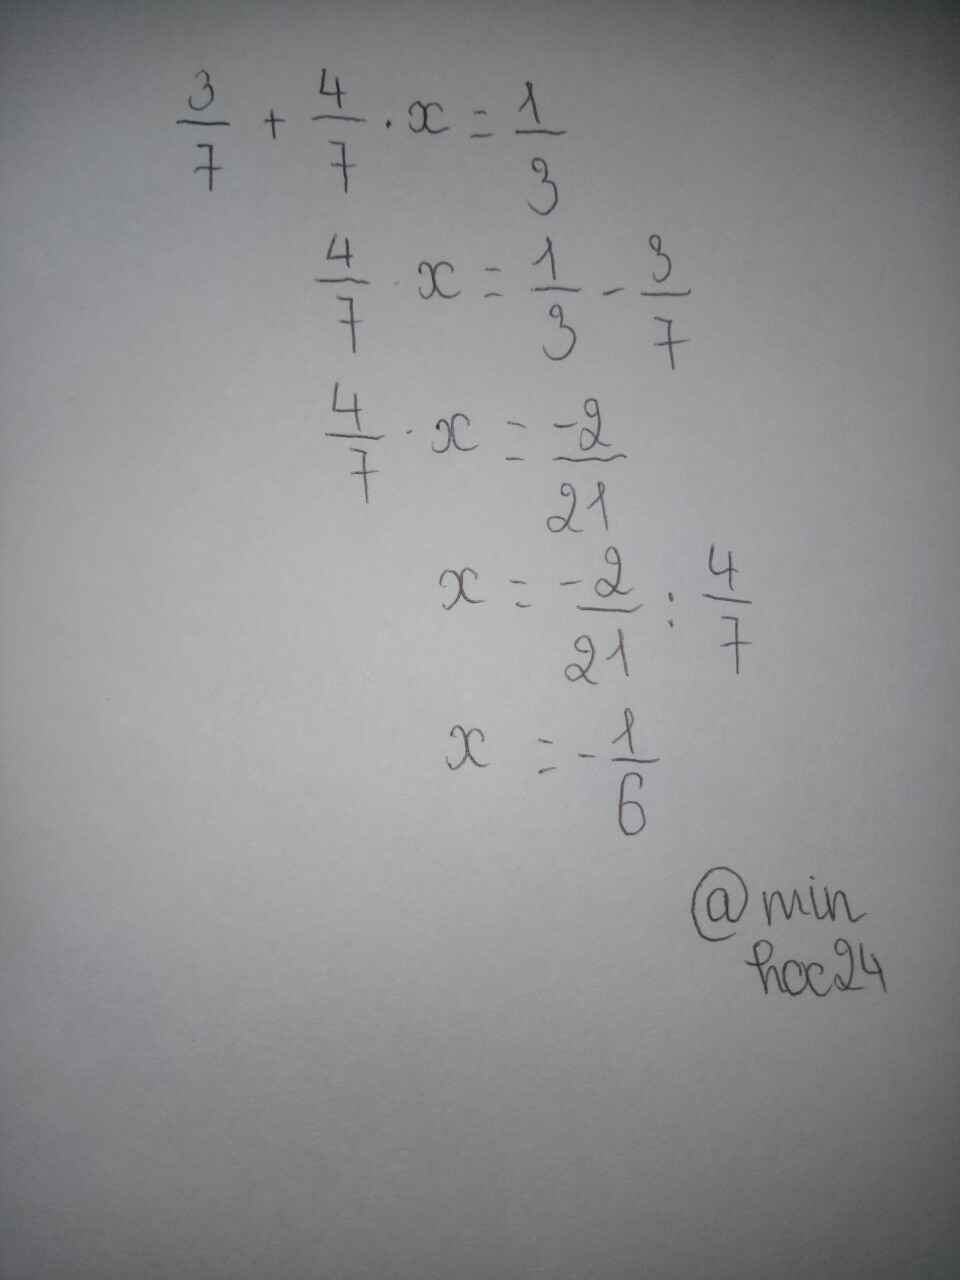 3/7 + 4/7 . x = 1/3
4/7 . x = 1/3 - 3/7
4/7 . x = -2/21
x = -2/21 : 4/7
x = -1/6
@min
hoc24